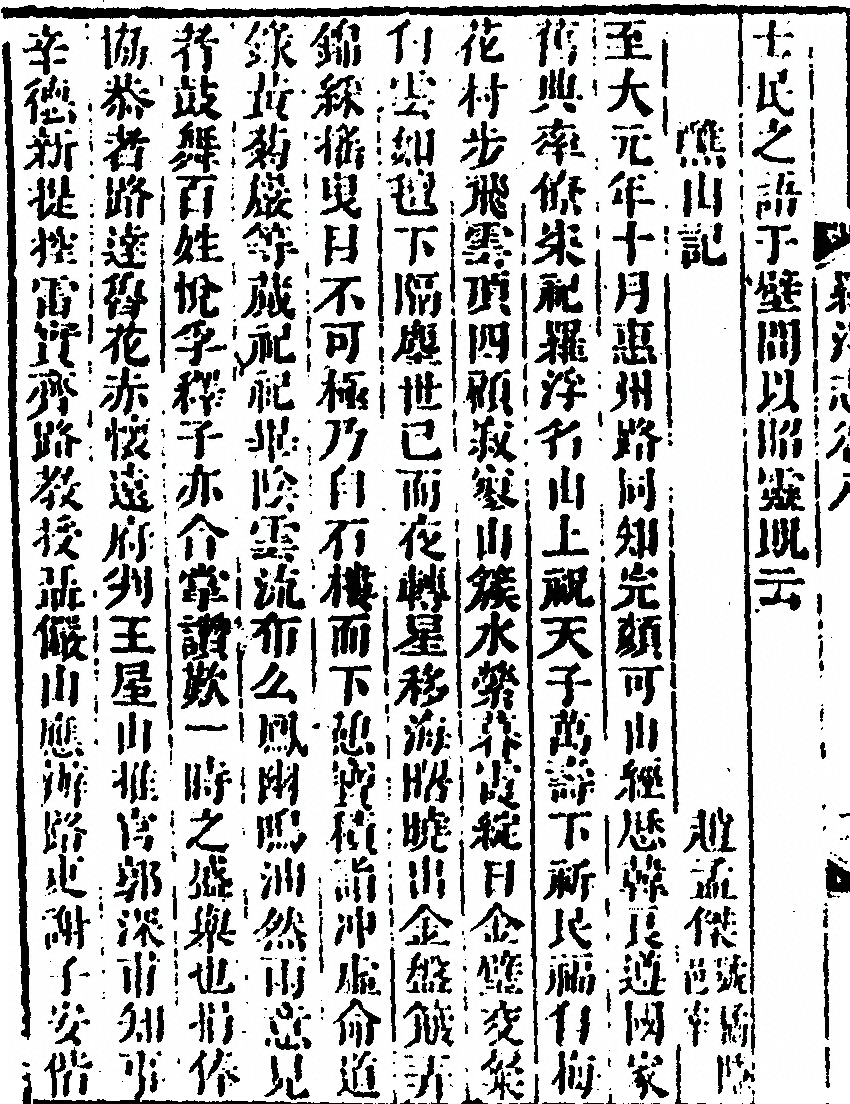 士民之語于壁間以昭靈貺云
樵山記
趙孟傑
至大元年十月惠州路同知完顏可山經歷韓良遵國家
舊典率僚案祀羅浮名山上祝天子萬壽下祈民福自梅
花村步飛雲頂四顧寂寥山簇水縈暮霞綻日金璧交粲
白雲如毯下隔塵世已而夜轉星移海昭曉出金盤
錦綵搖曳日不可極乃自石樓而下憩寶積詣冲虛命道
綠黃菊嚴等蕆祀祀畢陰雲流布么鳳幽鳴油然雨意見
者鼓舞百姓悅孚釋子亦合掌讃歎一時之盛舉也
協恭者路達魯花赤懷遠府判王屋山推官郭深甫知事
辛德新提控雷寶齊路教授 儼山應 路吏謝子安偕